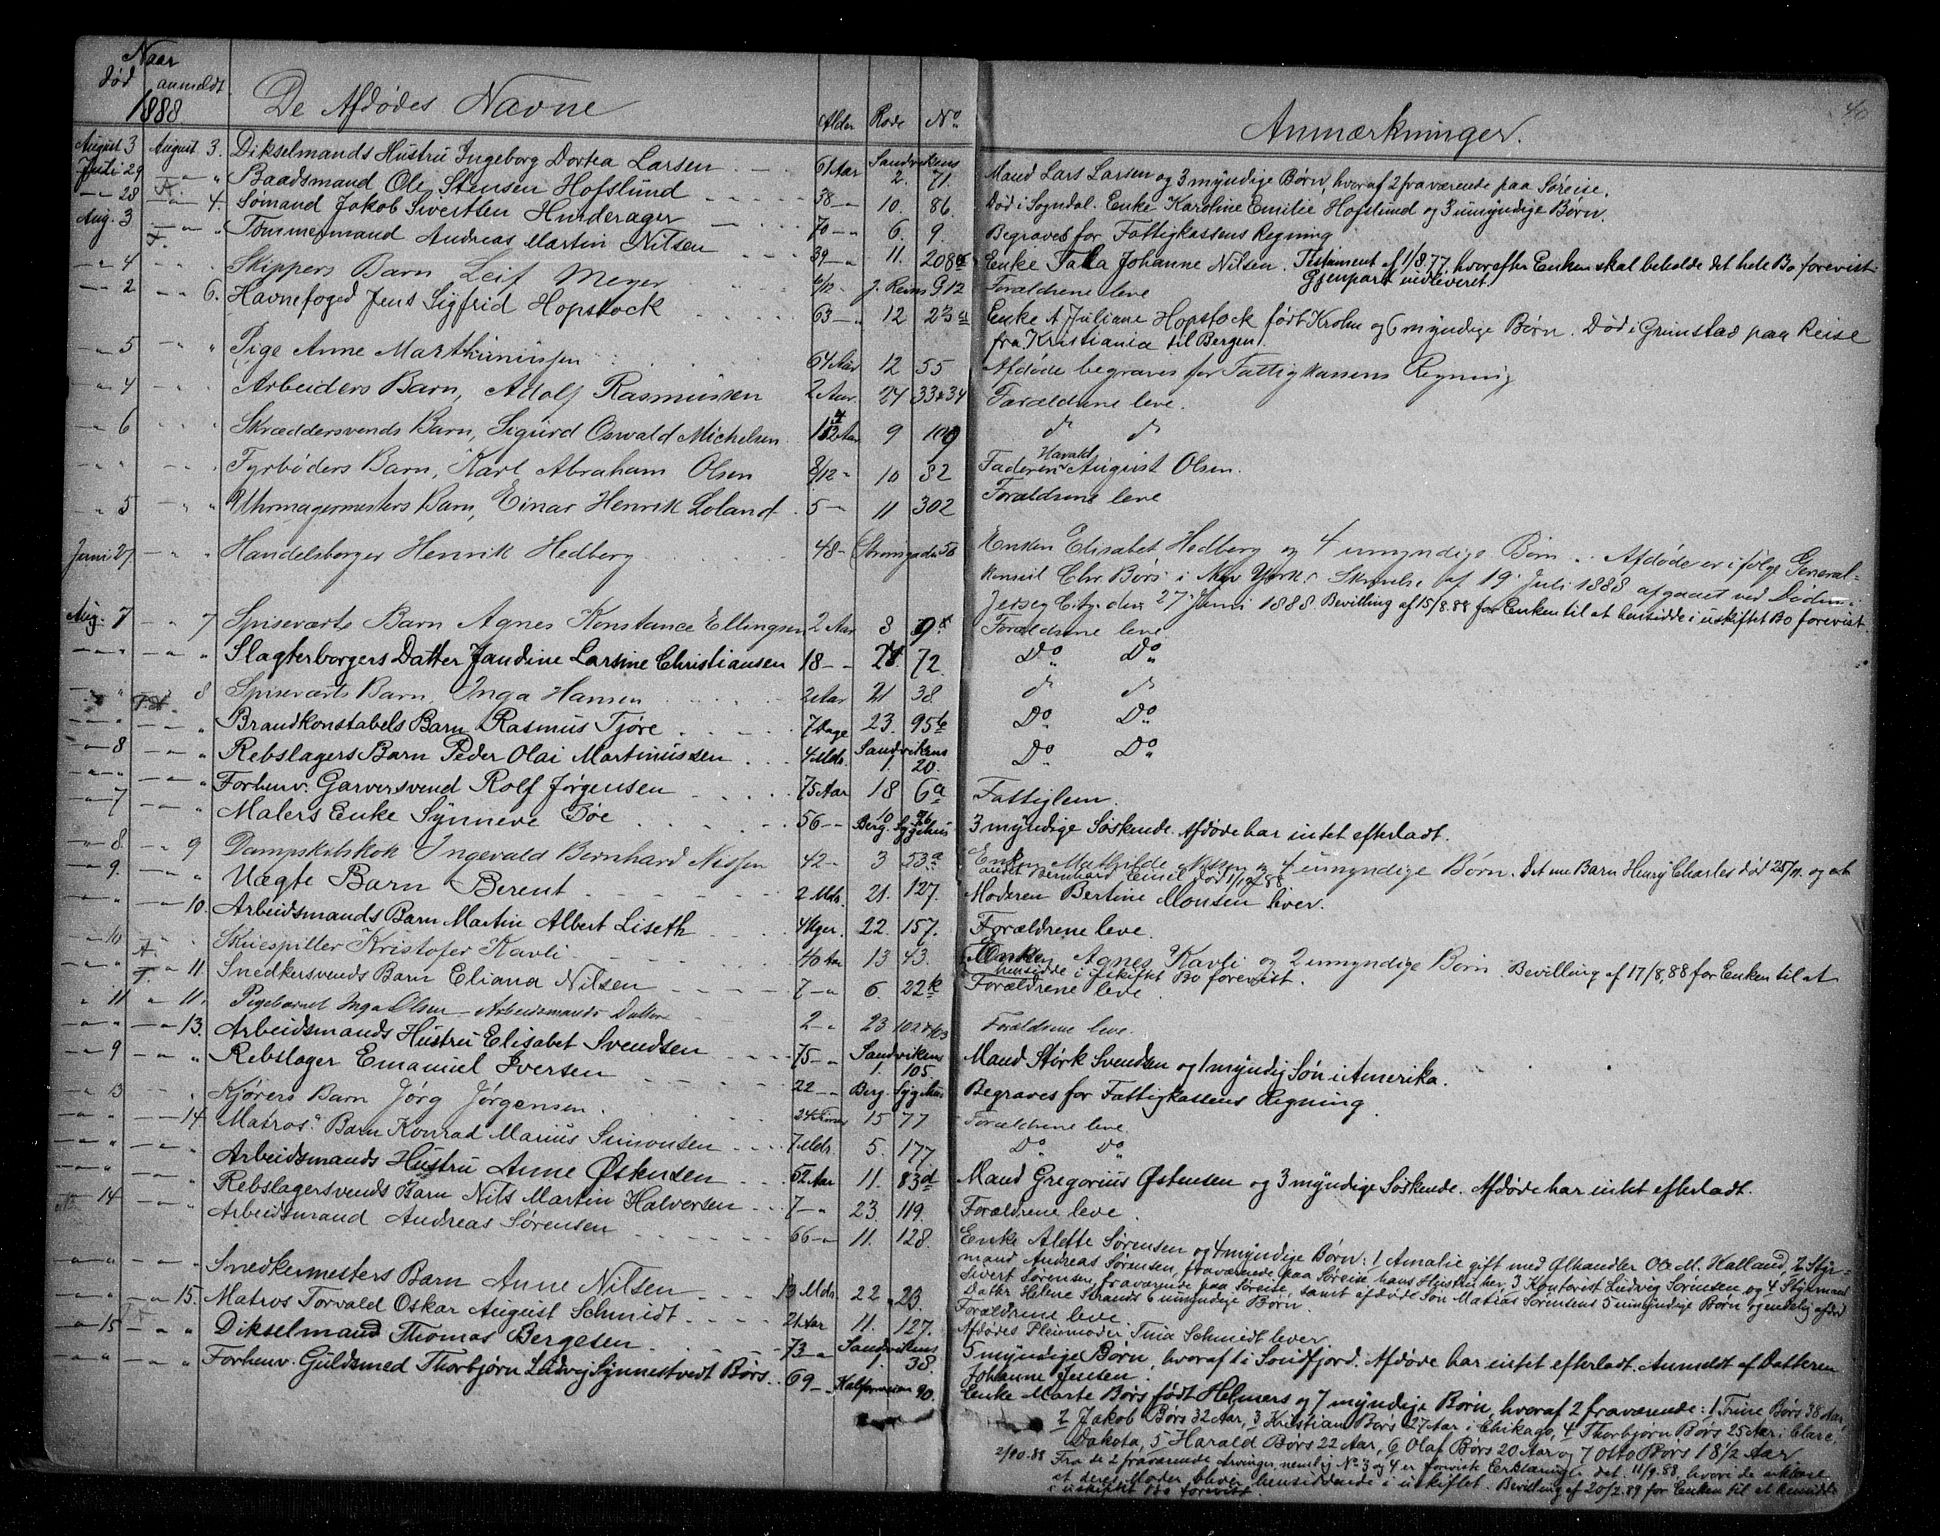 Naar
død anmeldt
1888 De Afdødes Navne Alder Rode No. Anmærkninger. 40
August 3 August 3. Dikselmands Hustru Ingeborg Dortea Larsen 61 Aar Sandvikens 2. 71. Mand Lars Larsen og 3 myndige Børn, hvoraf 2 fraværende paa Søreise.
Juli 29 — " Baadsmand Ole Stensen Hofslund 38 — 10. 86. Død i Sogndal. Enke Karoline Emilie Hofslund og 3 umyndige Børn.
— 28 — 4. Sømand Jakob Sivertsen Hunderager 70 — 6. 9. Begraves for Fattigkassens Regning
Aug. 3 — " Tømmermand Andreas Martin Nilsen 39 — 11. 208 Enke Johanne Nilsen. Testament af 1/8.77, hvorefter Enken skal beholde det hele Bo forevist.
Gjenpart indleveret.
— 4 " Skippers Barn Leif Meyer J. Reins G. 12 Forældrene leve
— 2 — 6. Havnefoged Jens Sigfrid Hopstock 63 — 12 Enke A Juliane Hopstock født Krohn og 6 myndige Børn. Død i Grimstad paa Reise
fra Kristiania til Bergen.
— 5 — " Pige Anne Marthinussen 64 Aar 12 55 Afdøde begraves for Fattigkassens Regning
— 4 " Arbeiders Barn, Adolf Rasmussen 2 Aar. 24 33&34 Forældrene leve.
— 6 " Skræddersvends Barn, Sigurd Oswald Michelsen 9 109 do do
" " Fyrbøders Barn, Karl Abraham Olsen 8/12 - 10 82 Faderen Harald August Olsen.
" 5 — " Uhrmagermesters Barn, Einar Henrik Loland 5 — 11 302 Forældrene leve
Juni 27 — " Handelsborger Henrik Hedberg 48 - Strangade 58 Enken Elisabet Hedberg og 4 umyndige Børn. Afdøde er ifølge General-
konsul Chr. Børs i New Yorks Skrivelse af 19 Juli 1888 afgaaet ved Døden i
Jersey City den 27 Juni 1888 Bevilling af 15/8.88 for Enken til at hensidde i uskiftet Bo forevist.
Aug. 7 — 7 Spiseværts Barn Agnes Konstance Ellingsen 2 Aar 8 9 Forældrene leve
— " Slagterborgers Datter Jandine Larsine Christiansen 18 — 72. Do Do
— 8 Spiseværts Barn, Inga Hansen 2 Aar 21 38 do do
— " Brandkonstabels Barn Rasmus Tjøre 7 Dage 23. 95b Do Do
— 8 — " Rebslagers Barn Peder Olai Martinussen 4 Mdr. Sandvikens 1. 20. Do Do
— " Forhenv. Garversvend Rolf Jørgensen 75 Aar 18 6a Fattiglem.
— 7 — " Malers Enke Synneve Bøe 56 — 10 76 Berg. Sygehus 3 myndige Søskende. Afdøde har intet efterladt.
— 8 — 9 Dampskibskok Ingevald Bernhard Nissen 42 — 3 53a Enken Mathilde Nissen og 4 umyndige Børn. Det ene Barn Henry Charles død 25/11. og et
andet Bernhard Emil død
— 9. — " Uægte Barn Berent 2 Mdr. 21. 127. Moderen Bertine Monsen lever.
— " 10. Arbeidsmands Barn Martin Albert Liseth 4 Uger. 22. 157. Forældrene leve.
— 10 Skuespiller Kristofer Kavli 40 Aar 13 43. Enken Agnes Kavli og 2 umyndige Børn. Bevilling af 17/8.88 for Enken til at
hensidde i uskiftet Bo forevist.
— " — 11 Snedkersvends Barn Eliana Nilsen 7 — 6. 22k Forældrene leve
" 11 " 11. Pigebarnet Inga Olsen - Arbeidsmands Datter 2 — 23 102&103 Forældrene leve.
— " — 13. Arbeidsmands Hustru Elisabet Svendsen 75 — Sandvikens 1. 105. Mand Størk Svendsen og 1 myndig Søn i Amerika.
— 9 — " Rebslager Emanuel Iversen 22 — Berg. Sygehus Begraves for Fattigkassens Regning.
" 13 Kjørers Barn Jørg Jørgensen 24 Timer 15 77 Forældrene leve.
— " — 14 Matros. Barn Konrad Marius Simonsen 7 Mdr. 5. 177 Do Do
— " — " Arbeidsmands Hustru Anne Østensen 52 Aar 11. 83d Mand Gregorius Østensen og 3 myndige Søskende. Afdøde har intet efterladt.
— " Rebslagersvends Barn Nils Martin Halversen 7 — 23. 119. Forældrene leve.
14 — " Arbeidsmand Andreas Sørensen 66 — 11. 128. Enke Alette Sørensen og 4 myndige Børn: 1 Amalie gift med Ølhandler O. M. Halland, 2 Styr-
mand Andreas Sørensen, fraværende paa Søreise hans Hustru her, 3 Kontorist Ludvig Sørensen og 4 Styrmand
Sivert Sørensen, fraværende paa Søreise, samt afdøde Søn Matias Sørensens 5 umyndige Børn og endelig afdød
Datter Helene Strands 6 umyndige Børn.
— " Snedkermesters Barn Anne Nilsen 13 Mdr. 22 23. Forældrene leve
— " — 15. Matros Torvald Oskar August Schmidt 21 Aar 11. 127. Afdødes Pleiemoder Trina Schmidt lever
— 15 " Dikselmand Thomas Bergesen 73 — Sandvikens 1. 38. 5 myndige Børn, hvoraf 1 i Søndfjord. Afdøde har intet efterladt. Anmeldt af Datteren
Johanne Jensen.
— " — " Forhenv. Guldsmed Thorbjørn Ludvig Synnestvedt Børs 69 — Kalfarveien 90. Enke Marte Børs født Helmers og 7 myndige Børn, hvoraf 2 fraværende: 1 Trine Børs 38 Aar,
2 Jakob Børs 32 Aar, 3 Kristian Børs 27 Aar i Chikago, 4 Thorbjørn Børs 25 Aar i Clare,
Dakota, 5 Harald Børs 22 Aar, 6 Olaf Børs 20 Aar og 7 Otto Børs 18 1/2 Aar
2/10.88 Fra de 2 fraværende Arvinger, nemlig No 3 og 4 er forevist Erklæring det. 11/9.88, hvori de erklære
at deres Moder bliver hensiddende i uskiftet. Bevilling af 20/2.89 for Enken til at hensidde
i uskiftet Bo forevist.